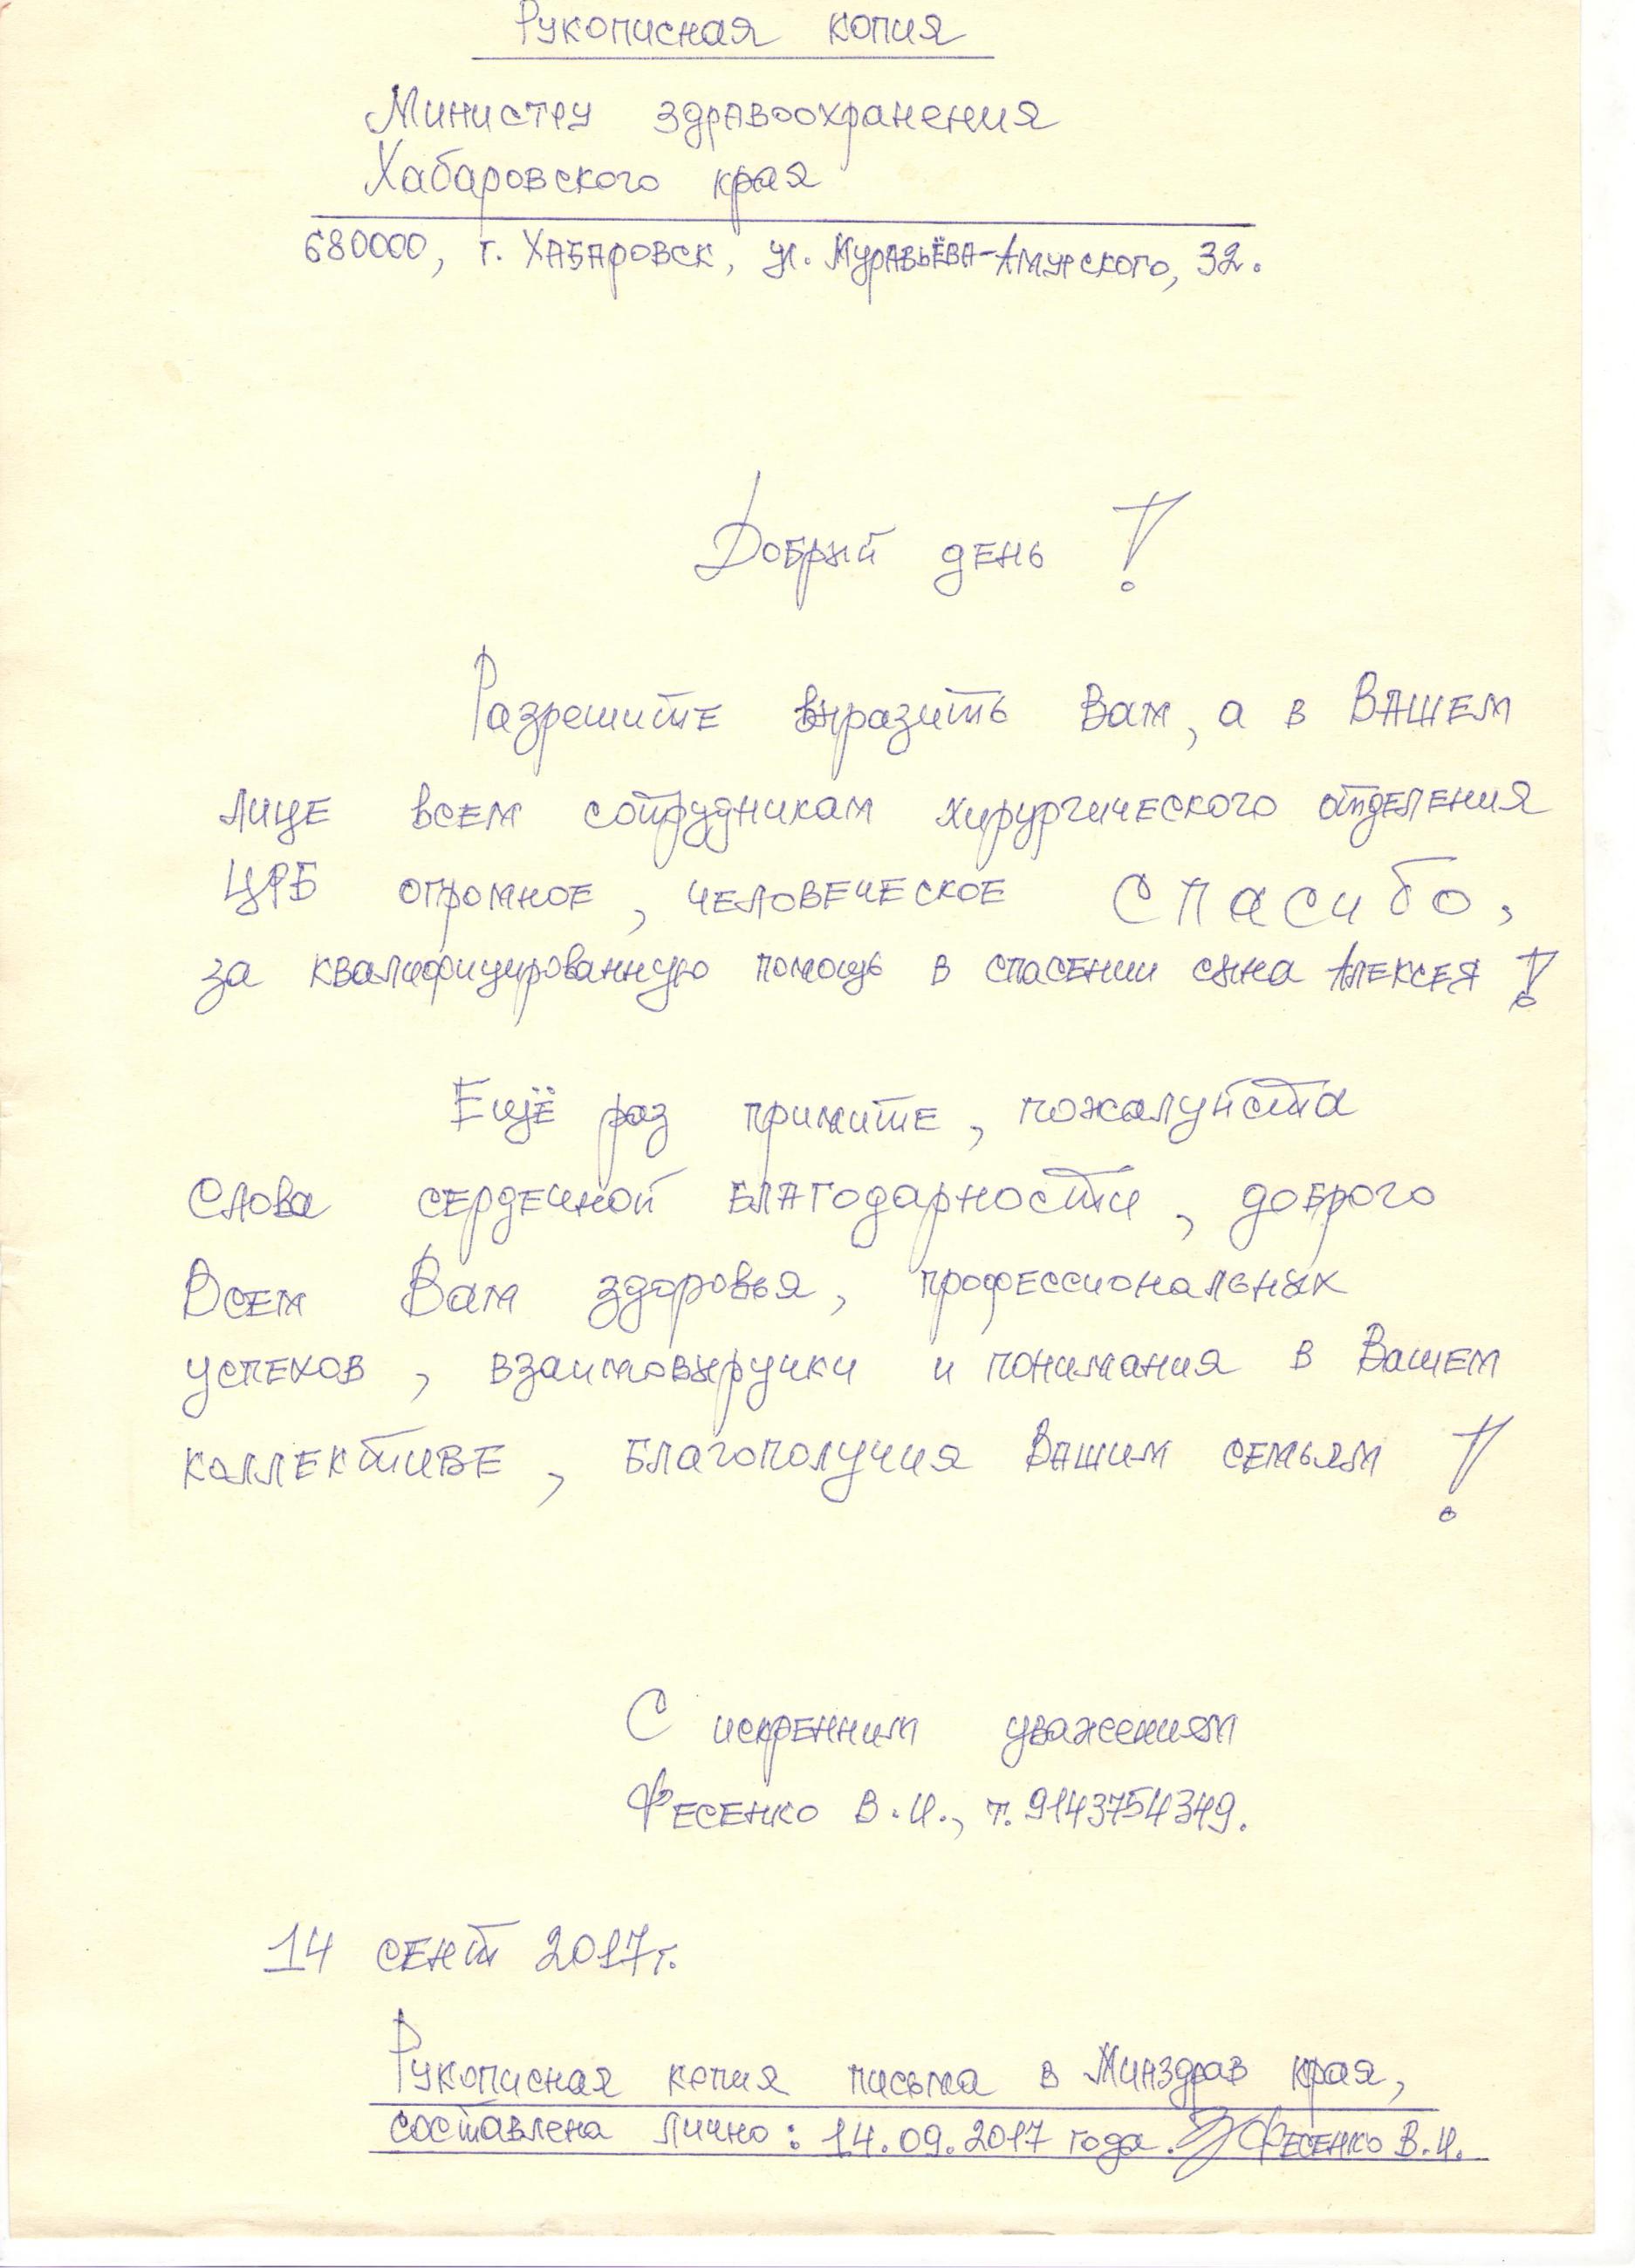 Рукописная копия
Министру здравоохранения
Хабаровского края
680000, г. Хабаровск, ул. Муравьёва-Амурского, 32.
Добрый день!
Разрешите выразить Вам, а в Вашем
лице всем сотрудникам хирургического отделения
ЦРБ огромное, человеческое спасибо,
за квалифицированную помощь в спасении сына Алексея!
Ещё раз примите, пожалуйста
слова сердечной благодарности, доброго
Всем Вам здоровья, профессиональных
успехов, взаимовыручки и понимания в Вашем
коллективе, благополучия Вашим семьям!
С искренним уважениям
Фесенко В.И., т. 9143754349.
14 сент 2017г.
Рукописная копия письма в Минздрав края,
составлена лично: 14.09.2017 года. Фесенко В.И.